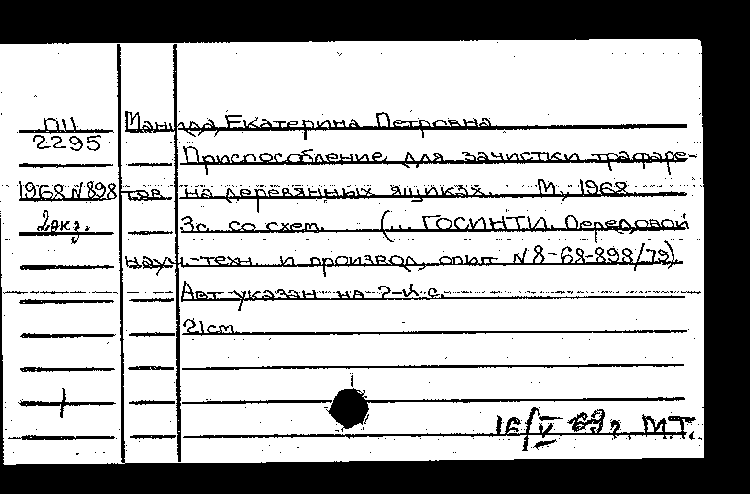 П11
2295
1968 N 898
2 экз.
Манида, Екатерина Петровна
Приспособление для зачистки трафаре-
тов на деревянных ящиках. М., 1968
3с. со схем. (... ГОСИНТИ. Передовой
научн-техн. и производ. опыт N 8-68-898/79)
Авт указан на 2-й с.
21см
16/V 69 г. М.Т.